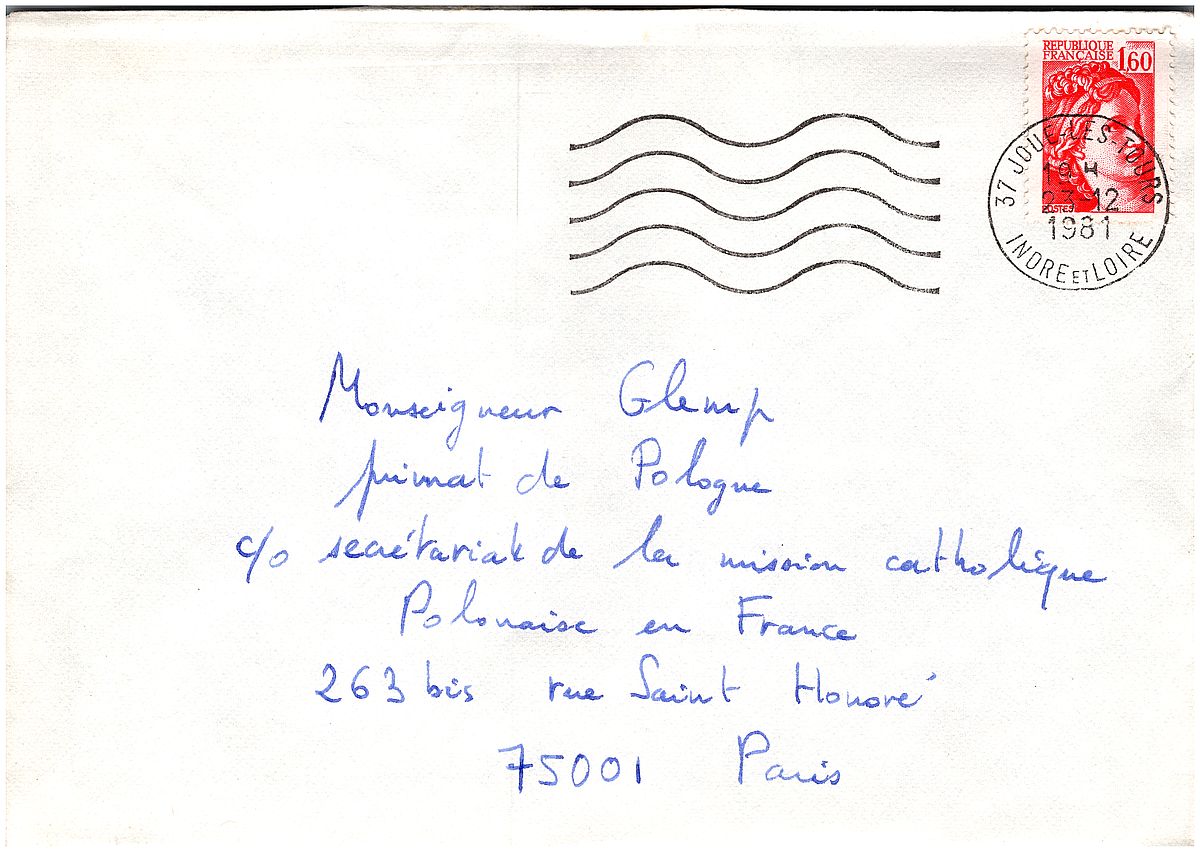 REPUBLIQUE
FRANÇAISE
1,60
POSTES
37 JOUE-LES-TOURS
19 H
23-12
1981
INDRE ET LOIRE
Monseigneur Glemp
primat de Pologne
c/o secrétariat de la mission catholique
Polonaise en France
263 bis rue Saint Honoré
75001 Paris